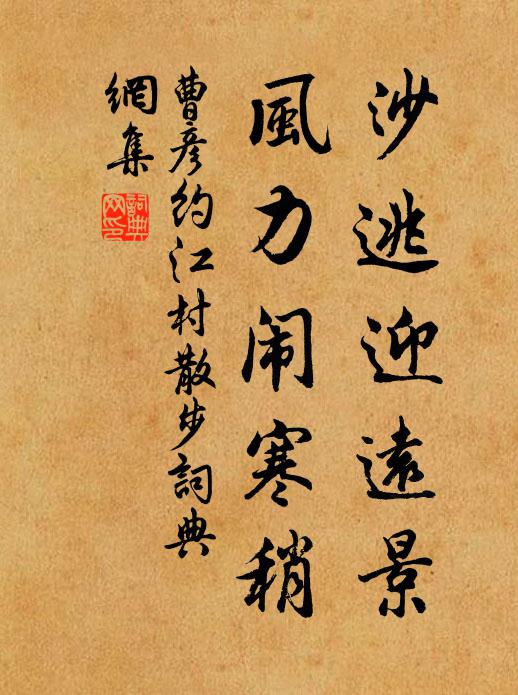 沙逃迎遠景
風力闹寒稍
曹彦約江村散步詞典
網集
詞典
网印